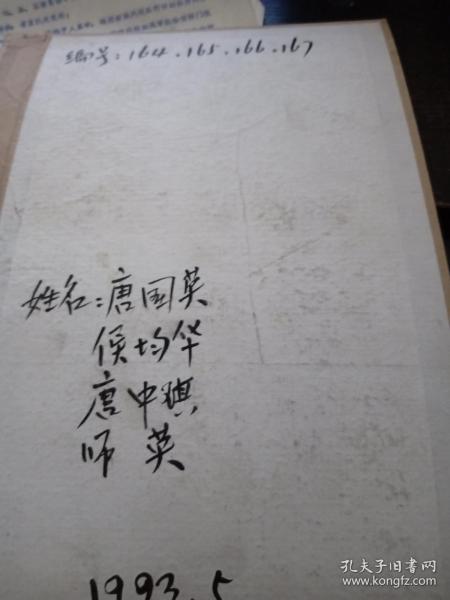 编号：164.165.166.167
姓名：唐国英
侯均华
唐中琪
师英
1993.5
孔夫子旧书网
www.kongfz.com